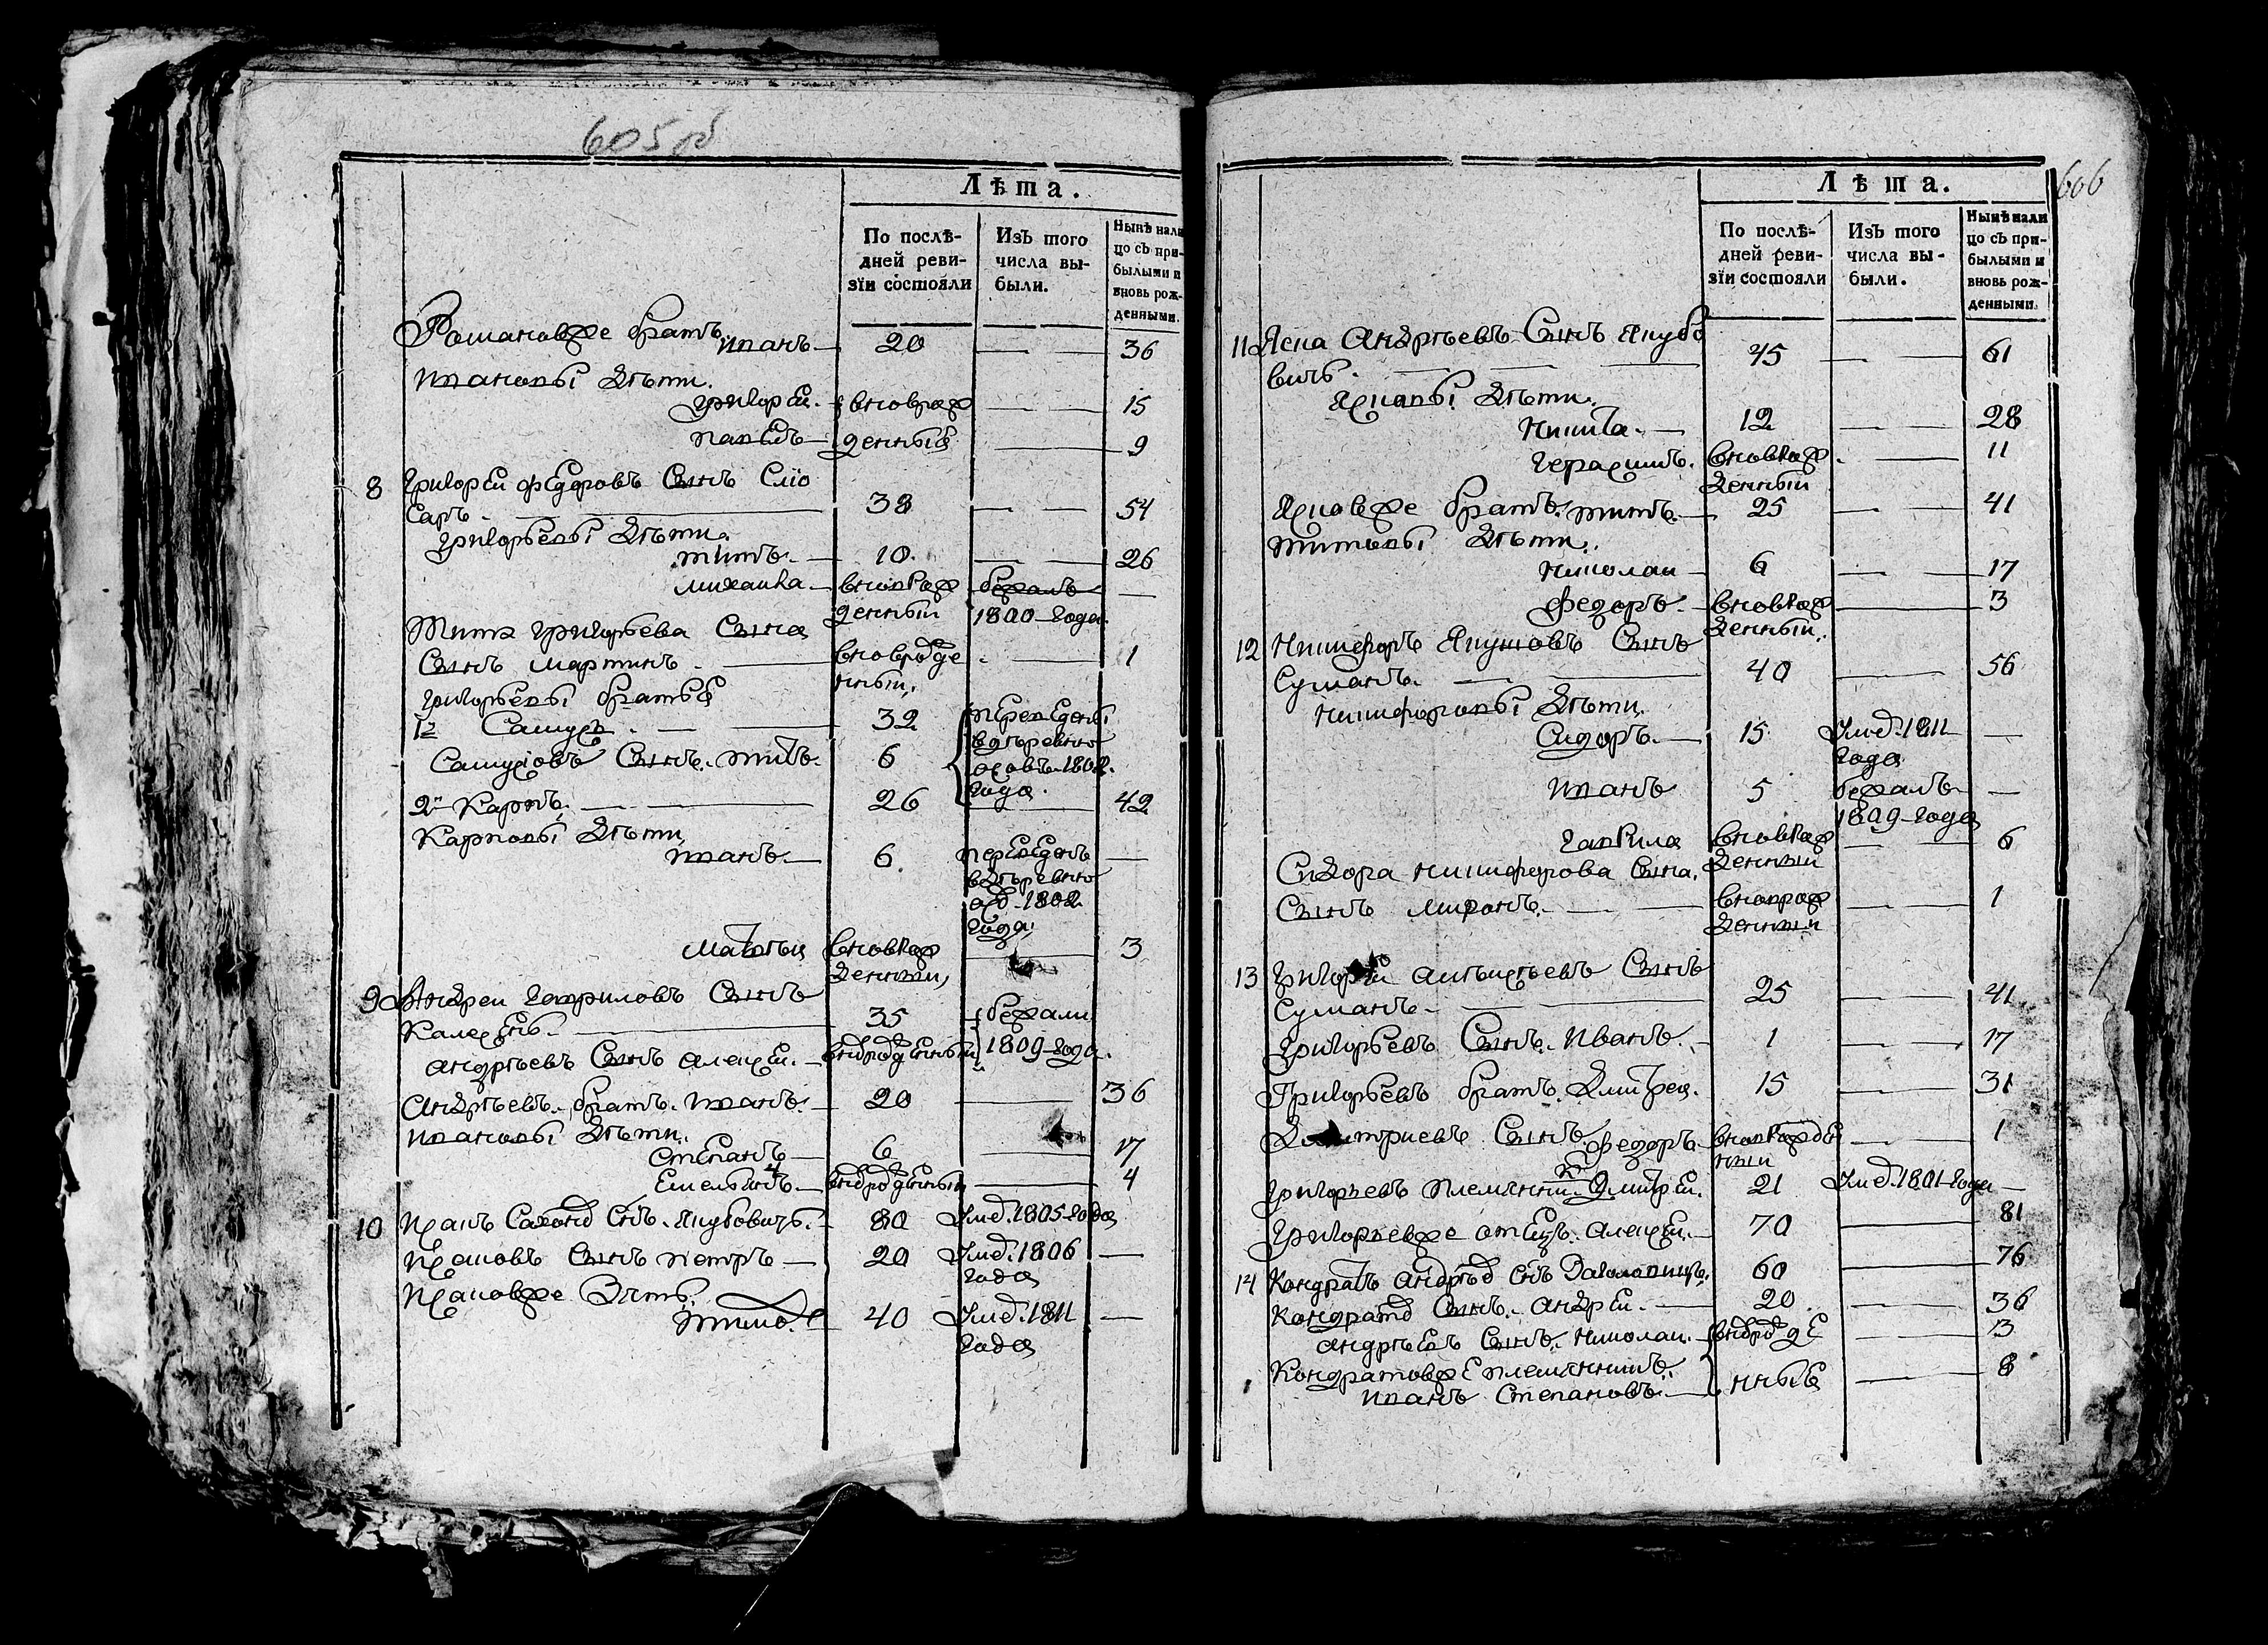 605 об
Лѣта.
По послѣ-
дней реви-
зїи состояли
Изъ того
числа вы-
были.
Нынѣ нали
цо съ при-
былыми и
вновь рож-
денными.
Романовже братъ Иванъ 20 — 36
Ивановы дѣти.
Григорей вновърож 15
Павелъ денныя 9
8 Григорей Федоровъ Сынъ Слю
саръ 38 — 54
Григорьевы дѣти.
Титъ 10 — 26
Михаила вновьрож бежалъ —
денный 1800 года
Тита Григорьева Сына
Сынъ Мартинъ вноврожде — 1
нный
Григорьевы братья
1й 32 переведены
вдеревню
Сынъ Титъ 6 1802
года
2й Карпъ 26 — 42
Карповы дѣти
Иванъ 6 переведенъ —
вдеревню
1802
года
Матвей вноврож — 3
денный
9 Андреи Гавриловъ Сынъ
35 бежали
Андрѣевъ Сынъ Алексей вноврожденный 1809 года
Андрѣевъ братъ Иванъ 20 — 36
Ивановы дѣти
Степанъ 6 — 17
Емельянъ вноврожденный — 4
10 Исакъ Сынъ Якубовичъ 80 Умер. 1805 года
Исаковъ Сынъ Петръ 20 Умер. 1806 —
года
Исаковже Зять
Тимо. 40 Умер. 1811 —
года
606
Лѣта.
По послѣ-
дней реви-
зїи состояли
Изъ того
числа вы-
были.
Нынѣ нали
цо съ при-
былыми и
вновь рож-
денными.
11 Андрѣевъ Сынъ Якубо
вичъ 45 — 61
дѣти
Никита 12 — 28
Герасимъ вновьрож — 11
денный
братъ Титъ 25 — 41
Титовы дѣти
Николаи 6 — 17
Федоръ вновьрож — 3
денный
12 Никифоръ Якимовъ Сынъ
Сумакъ 40 — 56
Никифоровы дѣти
Сидоръ 15 Умер. 1811 —
года
Иванъ 5 бежалъ —
1809 года
Гаврила вновьрож — 6
денный
Сидора Никифорова Сына
Сынъ Миронъ вноврож — 1
денный
13 Григорей Алексѣевъ Сынъ
Сумакъ 25 — 41
Григорьевъ Сынъ Иванъ 1 — 17
Григорьевъ братъ Дмитрей 15 — 31
Дмитриевъ Сынъ Федоръ вноврожде — 1
нный
Григорьевъ племянникъ Дмитрей 21 Умер. 1801 года —
Григорьевже отецъ Алексей 70 — 81
14 Кондратъ 60 — 76
Сынъ Андрей 20 — 36
Андрѣевъ Сынъ Николаи вноврожде — 3
Кондратовже племянникъ
Иванъ Степановъ нныя — 8